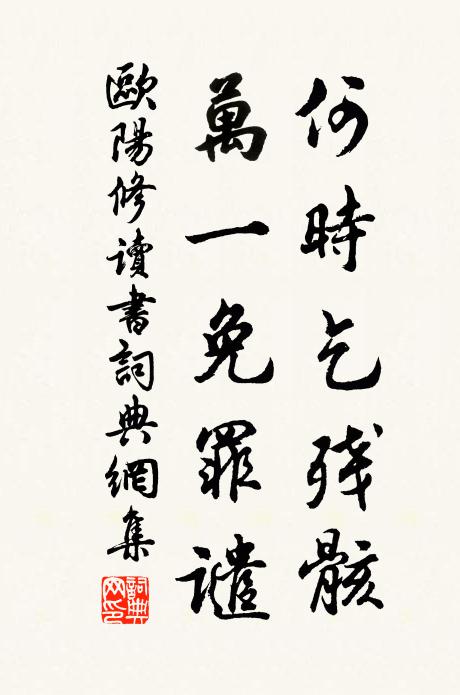 何時乞残骸
萬一免罪譴
歐陽修讀書詞典網集
詞典
网印